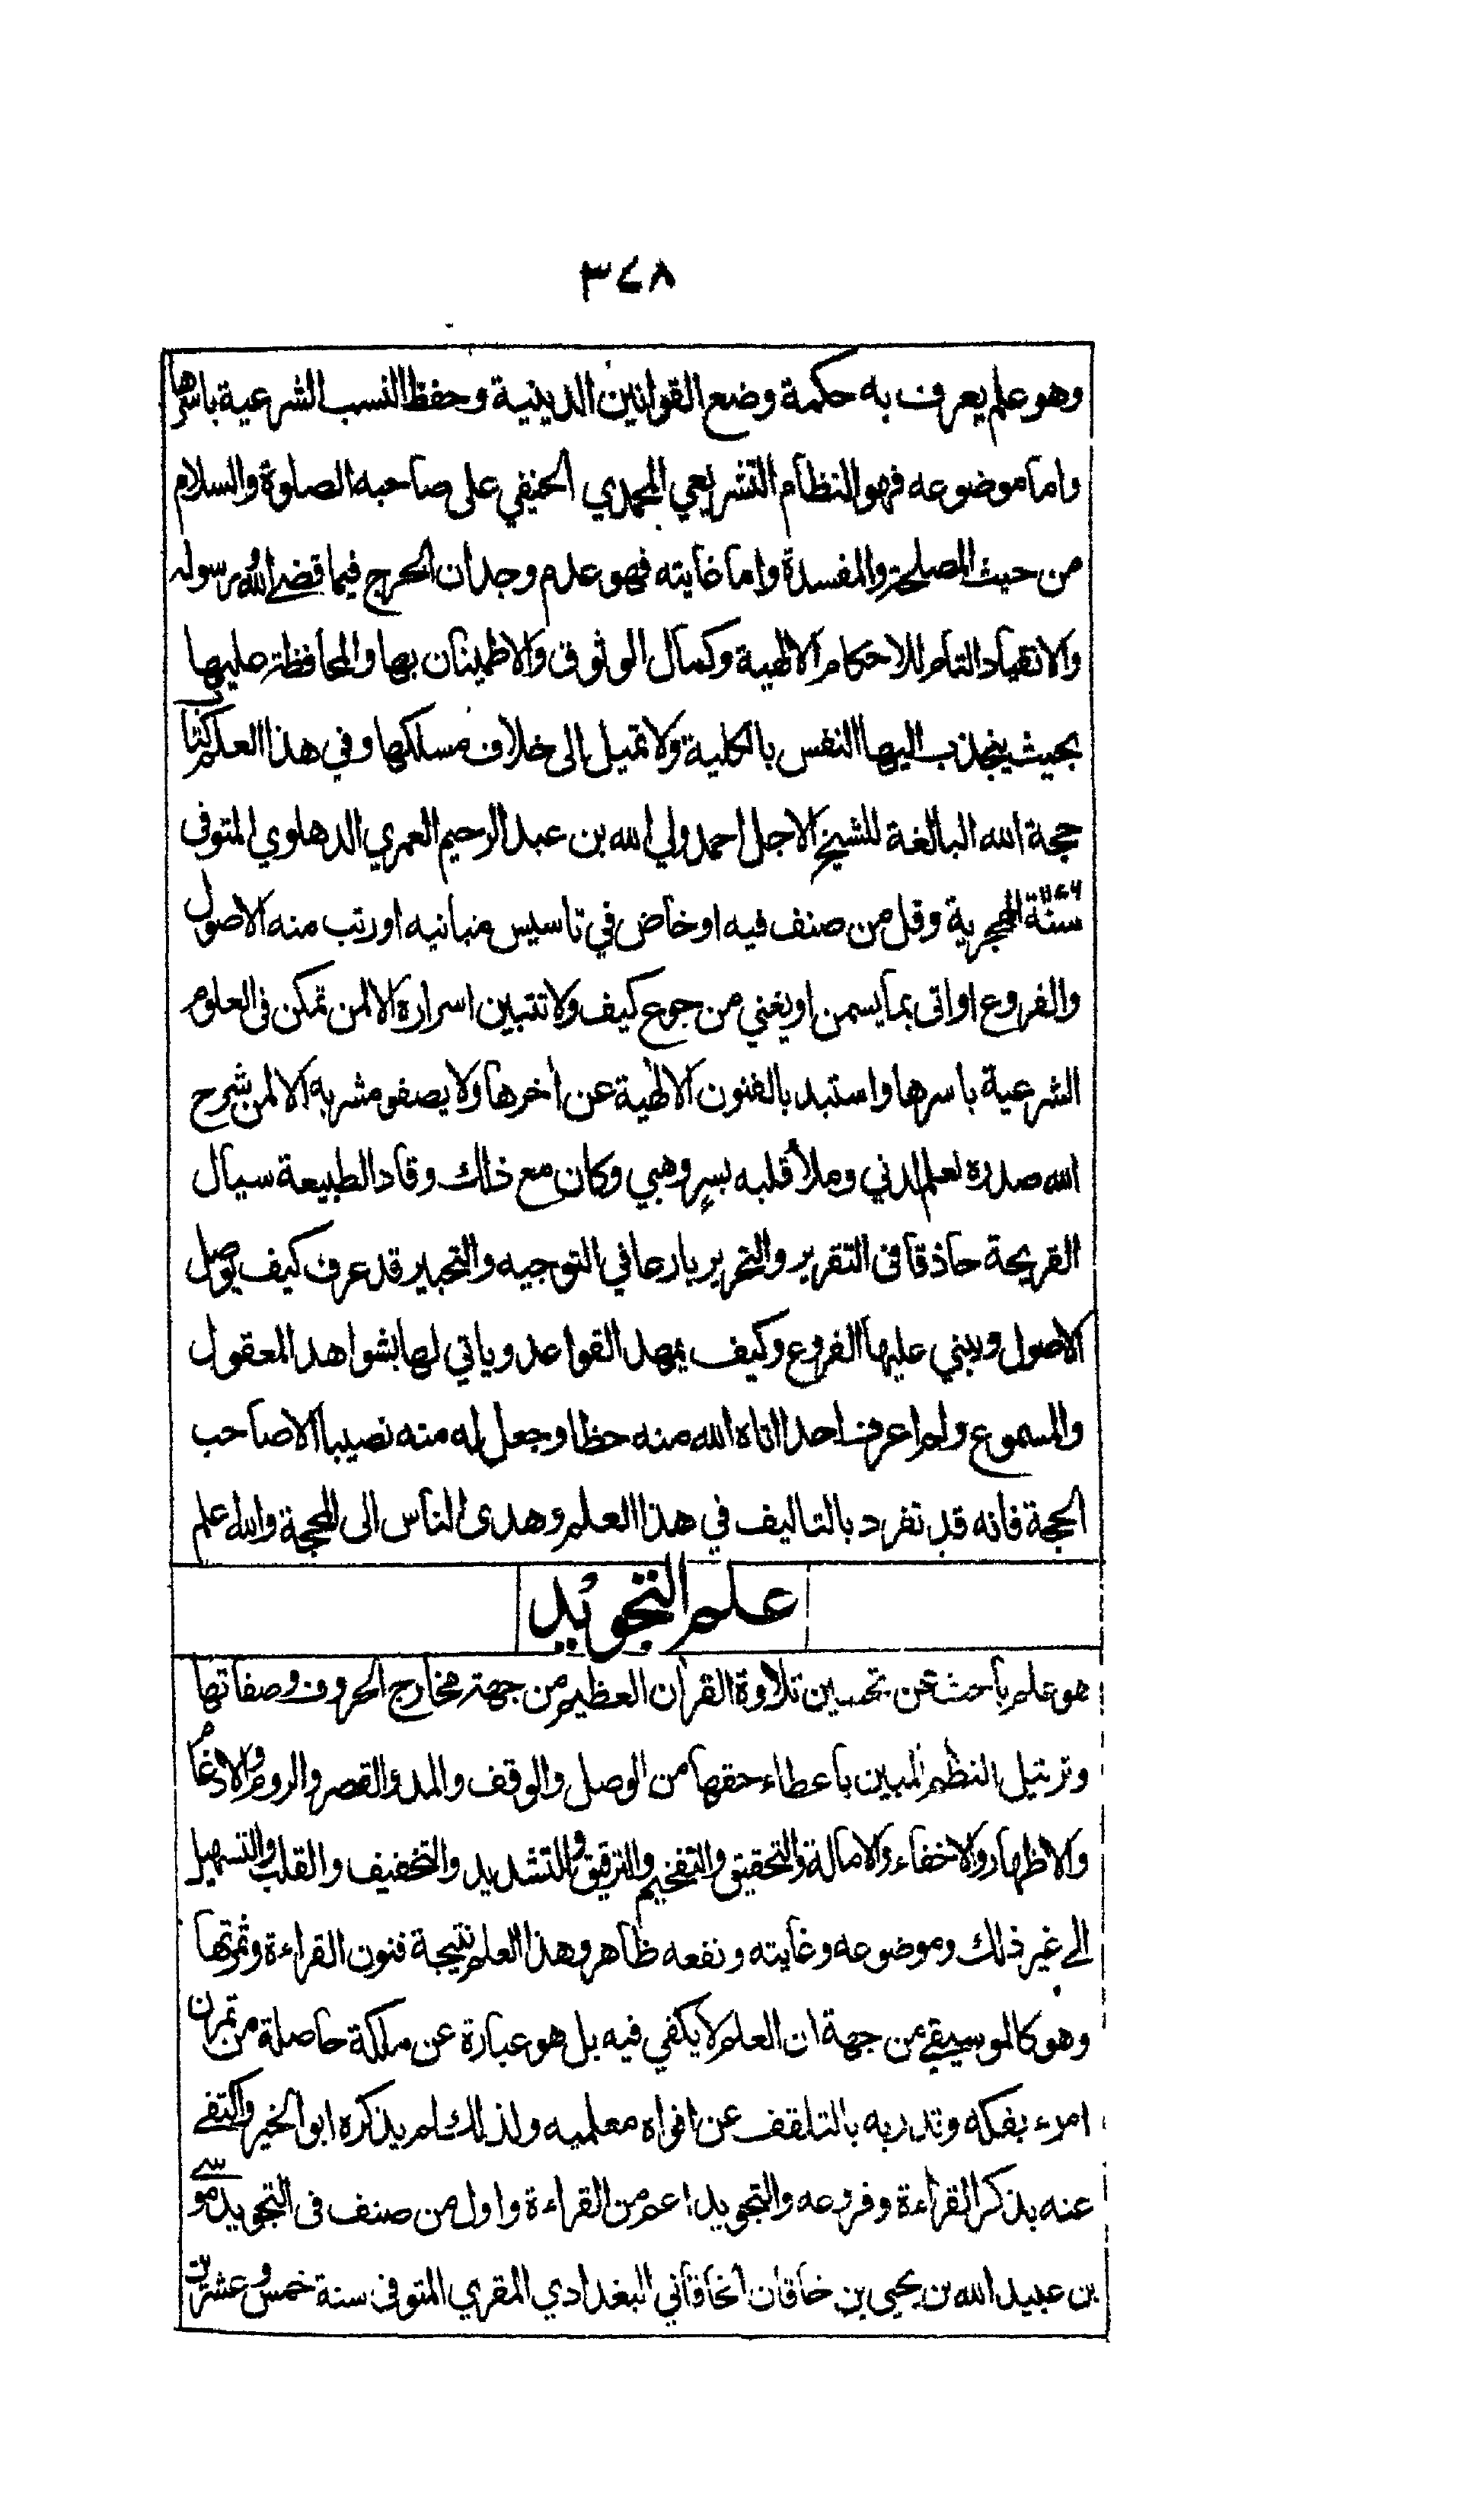 ٣٤٨
وهو علم يعرف به حكمة وضع القوانين الدينية وحفظ النسب الشرعية باسرها
واما موضوعه فهو النظام التشريعي المحمدي الحنيفي على صاحبه الصلوة والسلام
من حيث المصلحة والمفسدة واما غايته فهو عدم وجدان الحرج فيما قضى الله ورسوله
والانقياد التام للاحكام الالهية وكمال الوثوق والاطمينان بها والمحافظة عليها
بحيث ينجذب اليها النفس بالكلية ولا تميل الى خلاف مسلكها وفي هذا العلم كتاب
حجة الله البالغة للشيخ الاجل احمد ولي الله بن عبد الرحيم العمري الدهلوي المتوفى
سنة الهجرية وقل من صنف فيه او خاض في تاسيس مبانيه او رتب منه الاصول
والفروع او اتى بما يسمن او يغني من جوع كيف ولا تتبين اسراره الا لمن تمكن في العلوم
الشرعية باسرها واستبد بالفنون الالهية عن اخرها ولا يصفو مشربه الا لمن شرح
الله صدره لعلم لدني وملأ قلبه بسر وهبي وكان مع ذلك وقاد الطبيعة سيال
القريحة حاذقا في التقرير والتحرير بارعا في التوجيه والتحبير قد عرف كيف يوصل
الاصول ويبني عليها الفروع وكيف يمهد القواعد وياتي لها بشواهد المعقول
والمسموع ولم اعرف احدا اتاه الله منه حظا وجعل له منه نصيبا الا صاحب
الحجة فانه قد تفرد بالتاليف في هذا العلم وهدى الناس الى المحجة والله علم
علم التجويد
هو علم باحث عن تحسين تلاوة القرآن العظيم من جهة مخارج الحروف وصفاتها
وترتيل النظم المبين باعطاء حقها من الوصل والوقف والمد والقصر والروم والادغام
والاظهار والاخفاء والامالة والتحقيق والتفخيم والترقيق والتشديد والتخفيف والقلب والتسهيل
الى غير ذلك وموضوعه وغايته ونفعه ظاهر وهذا العلم نتيجة فنون القراءة وثمرتها
وهو كالموسيقى من جهة ان العلم لا يكفي فيه بل هو عبارة عن ملكة حاصلة من تمرن
امرء بفكه وتدربه بالتلقف عن افواه معلميه ولذلك لم يذكره ابو الخير واكتفى
عنه بذكر القراءة وفروعه والتجويد اعم من القراءة واول من صنف في التجويد موسى
بن عبيد الله بن يحيى بن خاقان الخاقاني البغدادي المقري المتوفى سنة خمس وعشرين